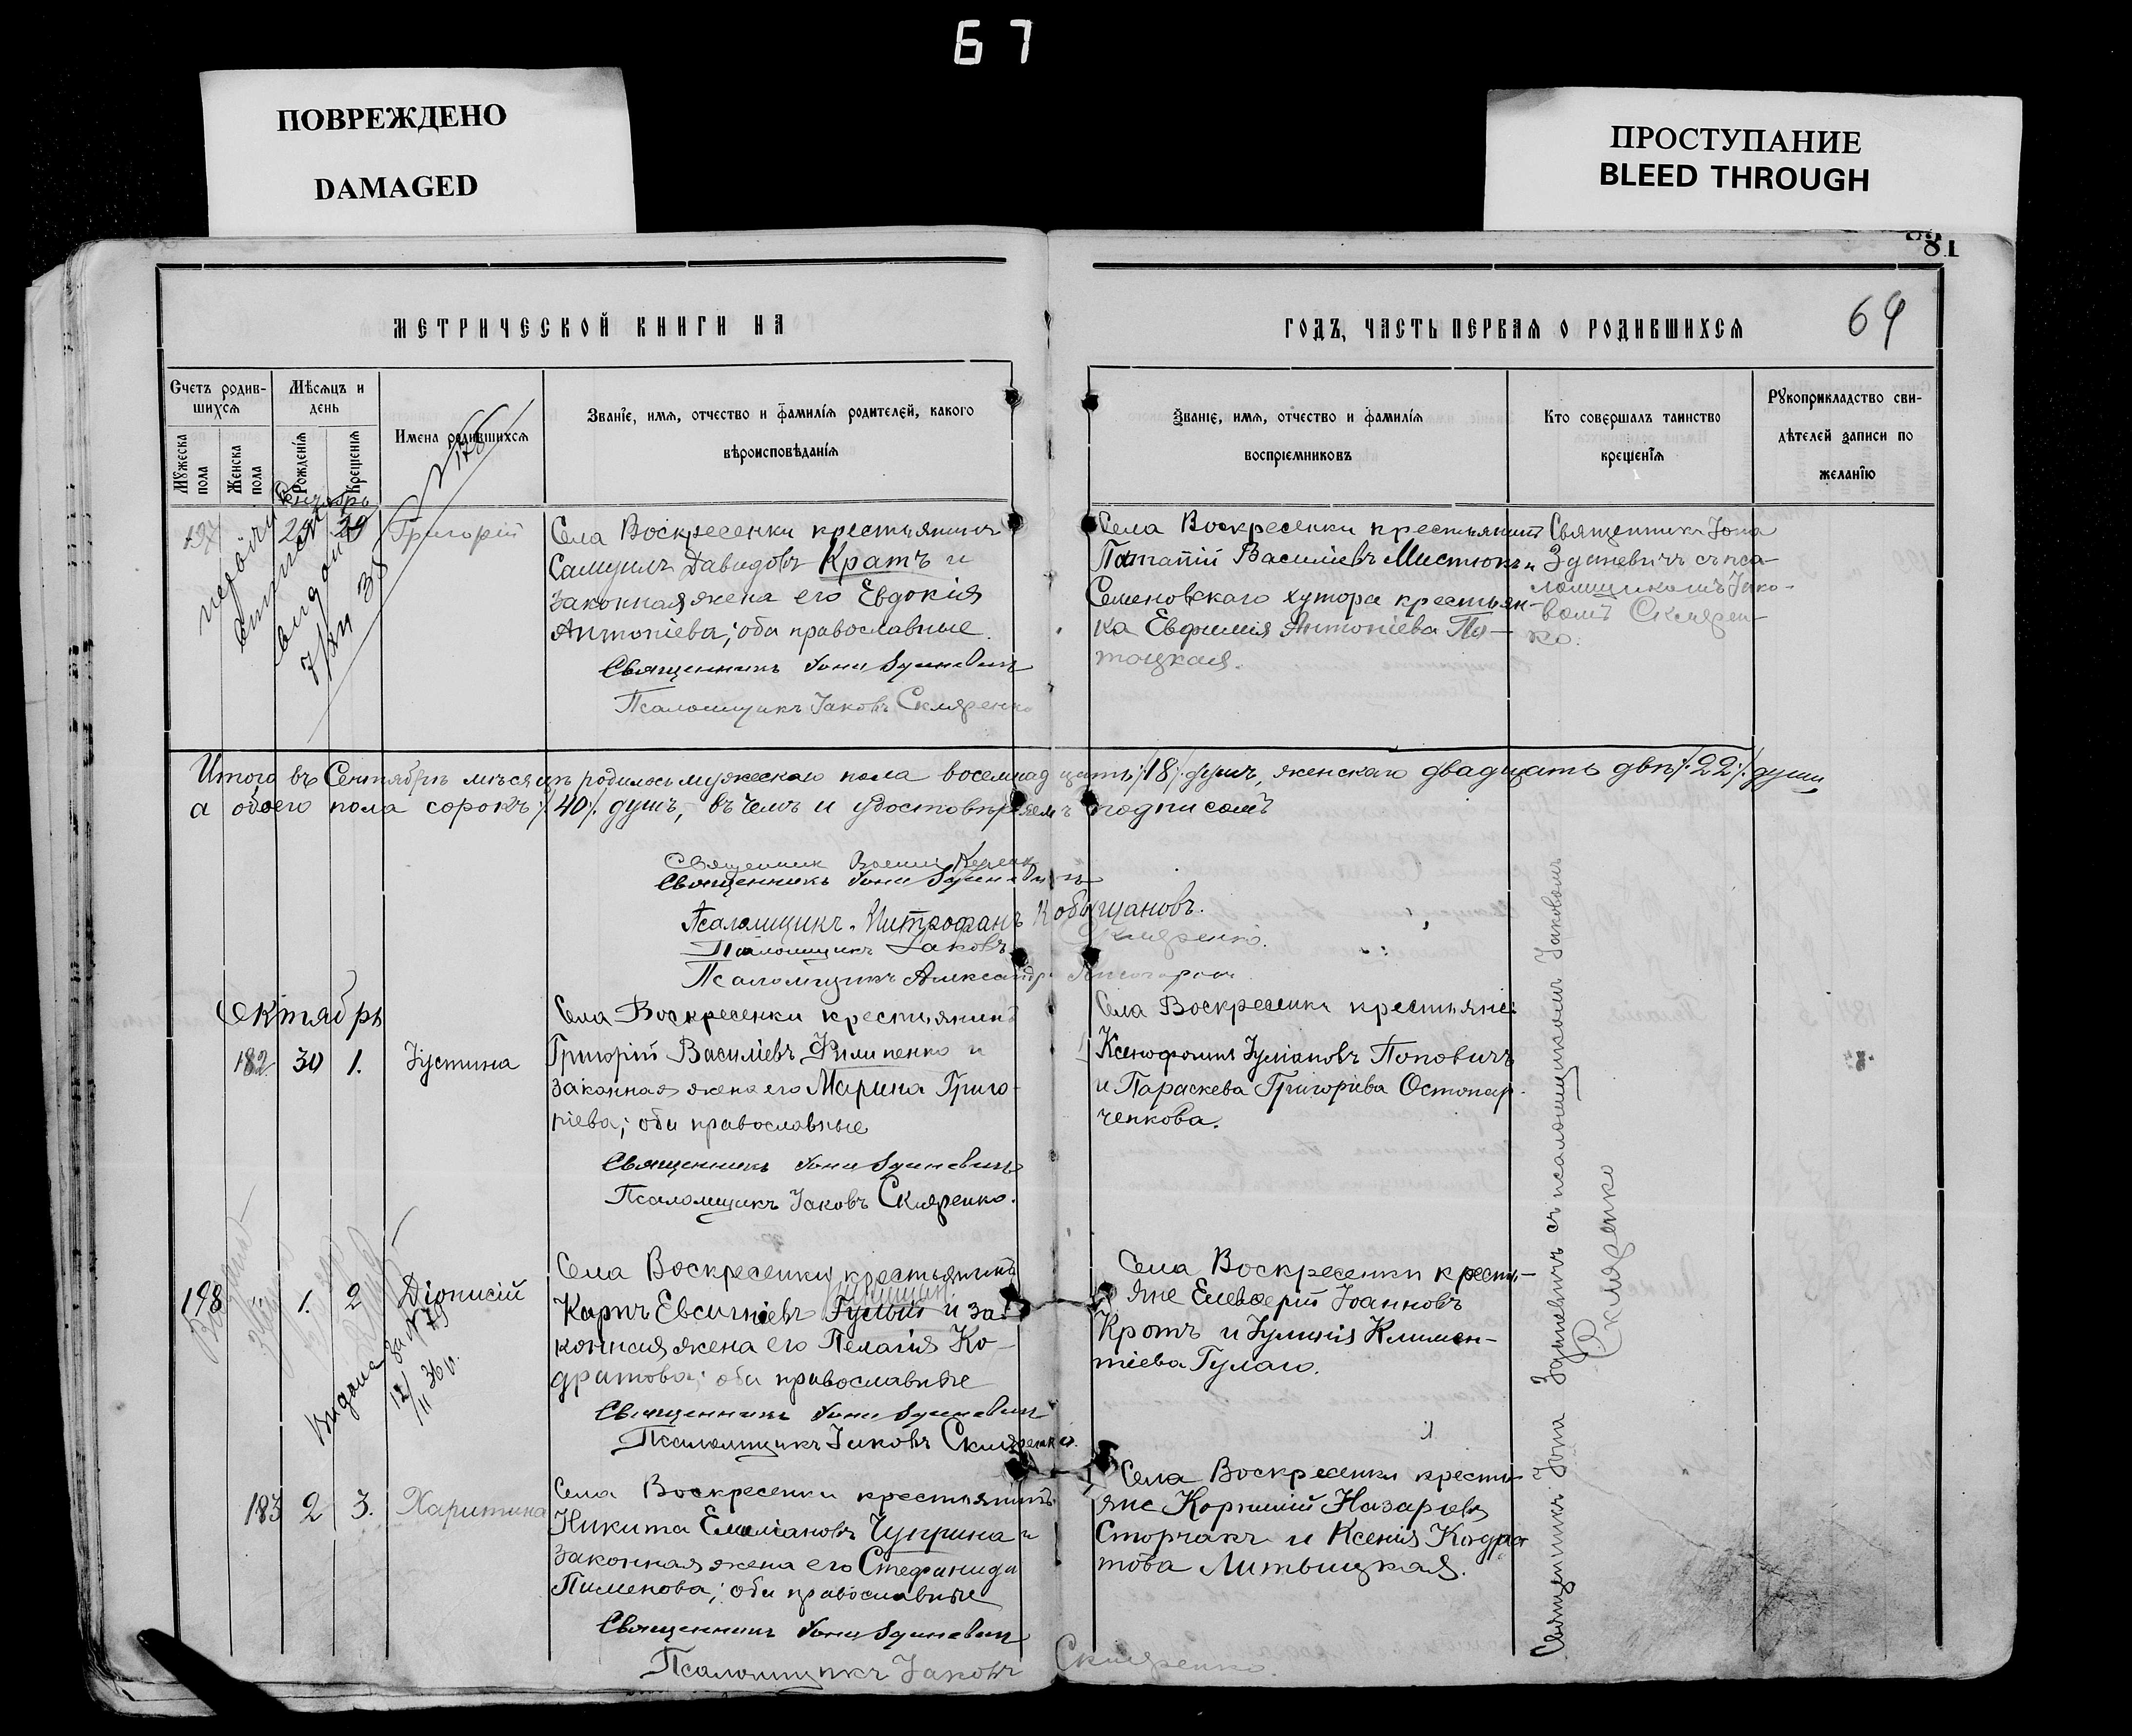 67
ПОВРЕЖДЕНО
DAMAGED
ПРОСТУПАНИЕ
BLEED THROUGH
81
69
МЕТРИЧЕСКОЙ КНИГИ НА
ГОДЪ, ЧАСТЬ ПЕРВАЯ О РОДИВШИХСЯ
Счетъ родив-
шихся
Мужеска пола
Женска пола
Мѣсяцъ и
день
Рожденія
Крещенія
Имена родившихся
Званіе, имя, отчество и фамилія родителей, какого
вѣроисповѣданія
Званіе, имя, отчество и фамилія
воспріемниковъ
Кто совершалъ таинство
крещенія
Рукоприкладство сви-
дѣтелей записи по
желанію
Сентябрь
197 29 30 Григорій
Села Воскресенки крестьянинъ
Самуилъ Давидовъ Кратъ и
законная жена его Евдокія
Антоніева; оба православные.
Священникъ Іона
Псаломщикъ Іаковъ Скляренко
Села Воскресенки крестьянинъ
Василіевъ
Семеновскаго хутора крестьян-
ка Евфимія Антоніева По-
тоцкая.
Священникъ Іона
Здиневичъ съ пса-
ломщикомъ Іако-
вомъ Скларен-
ко.
Итого въ Сентябрѣ мѣсяцѣ родилось мужескаго пола восемнадцать /18/ душъ, женскаго двадцать двѣ /.22/. души,
а обоего пола сорокъ /.40/. душъ, въ чемъ и удостовѣряемъ подписомъ
Священник
Священникъ Іона
Псаломщикъ Митрофанъ
Псаломщикъ Іаковъ Скляренко.
Псаломщикъ Александръ
Октябрь
182 30 1. Іустина
Села Воскресенки крестьянинъ
Григорій Василіевъ Филипенко и
законная жена его Марина Григо-
ріева; оба православные
Священникъ Іона
Псаломщикъ Іаковъ Скляренко.
Села Воскресенки крестьяне:
Ксенофонтъ Іуліановъ Поповичъ
и Параскева Григоріева Остопар-
ченкова.
198 1. 2 Діонисій
Села Воскресенки крестьянинъ
Карпъ Евсигніевъ Гулый и за-
конная жена его Пелагія Ко-
дратова; оба православные
Священникъ Іона
Псаломщикъ Іаковъ Скляренко.
Села Воскресенки кресть-
яне Елевферій Іоанновъ
Кротъ и Іуліанія Климен-
тіева Гулаго.
183 2 3. Харитина
Села Воскресенки крестьянинъ
Никита Емеліановъ Чуприна и
законная жена его Стефанида
Пименова; оба православные
Священникъ Іона
Псаломщикъ Іаковъ Скляренко.
Села Воскресенки кресть-
яне Корнилій Назаріевъ
Сторчакъ и Ксенія Кодра-
това Литвицкая.
Священникъ Іона Здиневичъ съ псаломщикомъ Іаковомъ
Скляренко